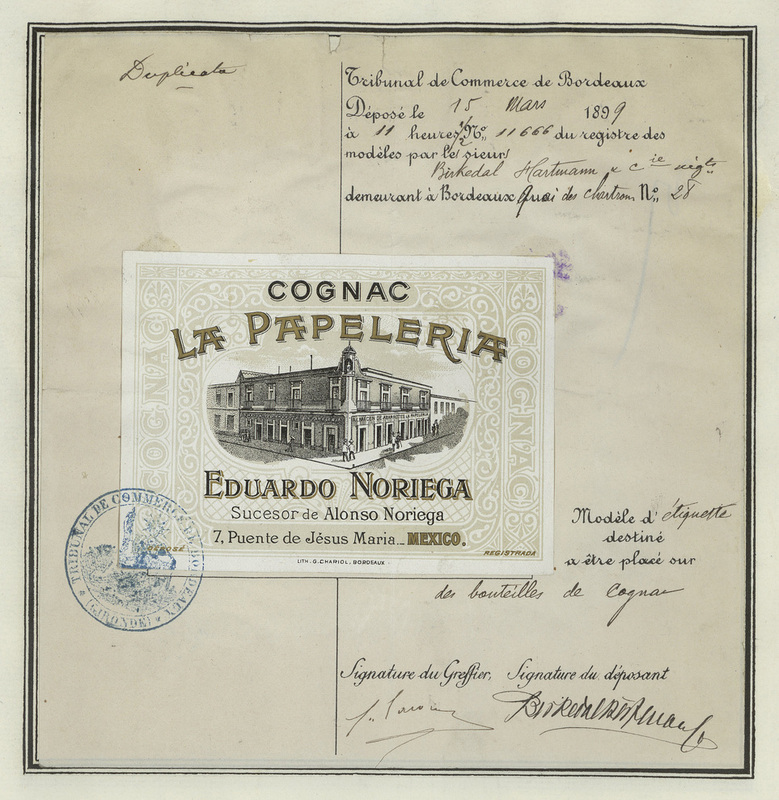 Duplicata
Tribunal de Commerce de Bordeaux
Déposé le 15 Mars 1899
à 11 heures 1/2 Nº 11666 du registre des
modèles par le sieur
Birkedal Hartmann & Cie négts
demeurant à Bordeaux Quai des Chartrons Nº 28
COGNAC
LA PAPELERIA
COGNAC
COGNAC
EDUARDO NORIEGA
Sucesor de Alonso Noriega
7, Puente de Jésus Maria._ MEXICO.
DEPOSÉ
REGISTRADA
LITH. G. CHARIOL. BORDEAUX
TRIBUNAL DE COMMERCE DE BORDEAUX
(GIRONDE)
Modèle d'étiquette
destiné
a être placé sur
des bouteilles de Cognac
Signature du Greffier, Signature du déposant
Birkedal Hartmann & Co